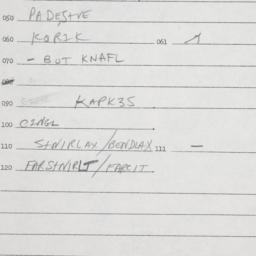 050 PADESTVE
060 KORIK 061
070 - BUT KNAFL
090 KAPK35
100 CINGL
110 StNIRLAX/BENDLAX 111 —
120 FARStNIRLT/FARCIT